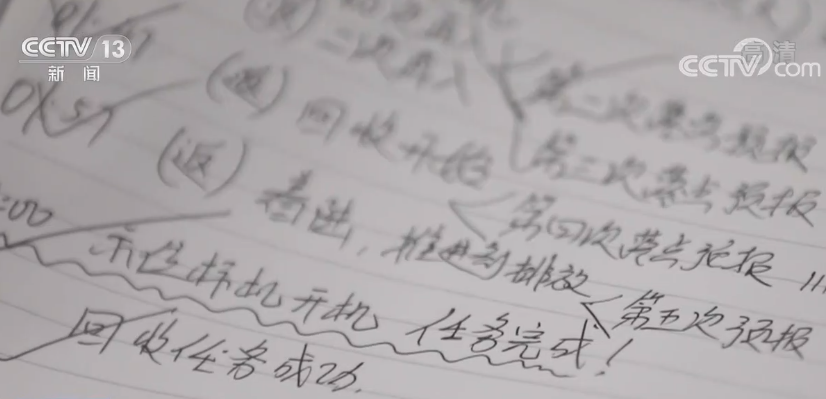 CCTV 13
新闻
高清
CCTV com
二次再入
第二次落点预报
(返) 回收开始
第三次落点预报
第四次落点预报
(返) 着陆，推进剂排放
第五次预报
:00
示位标机开机 任务完成！
回收任务成功.